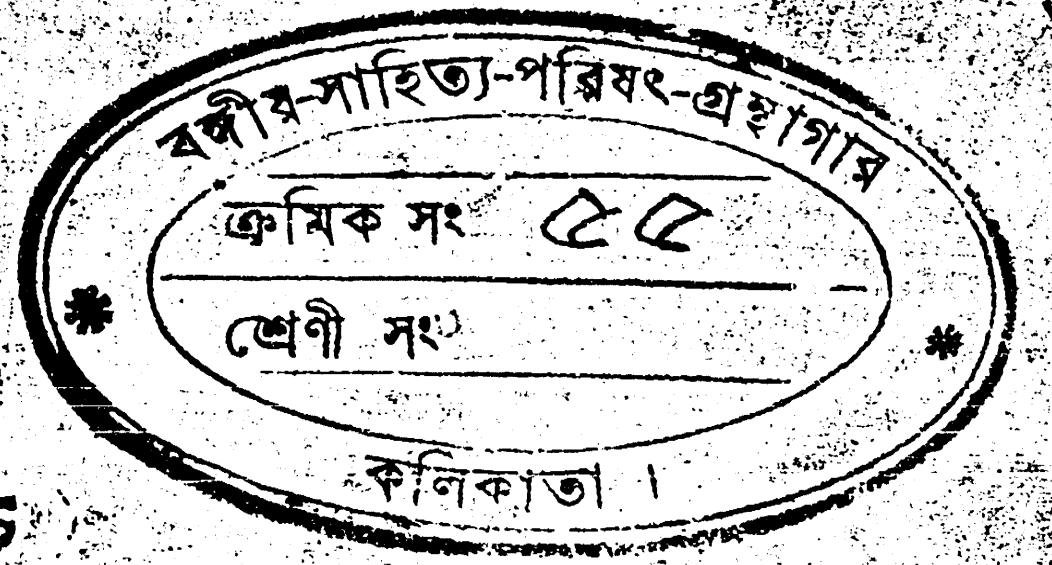 বঙ্গীয়-সাহিত্য-পরিষৎ-গ্রন্থাগার
ক্রমিক সং ৫৫
শ্রেণী সং
কলিকাতা ।